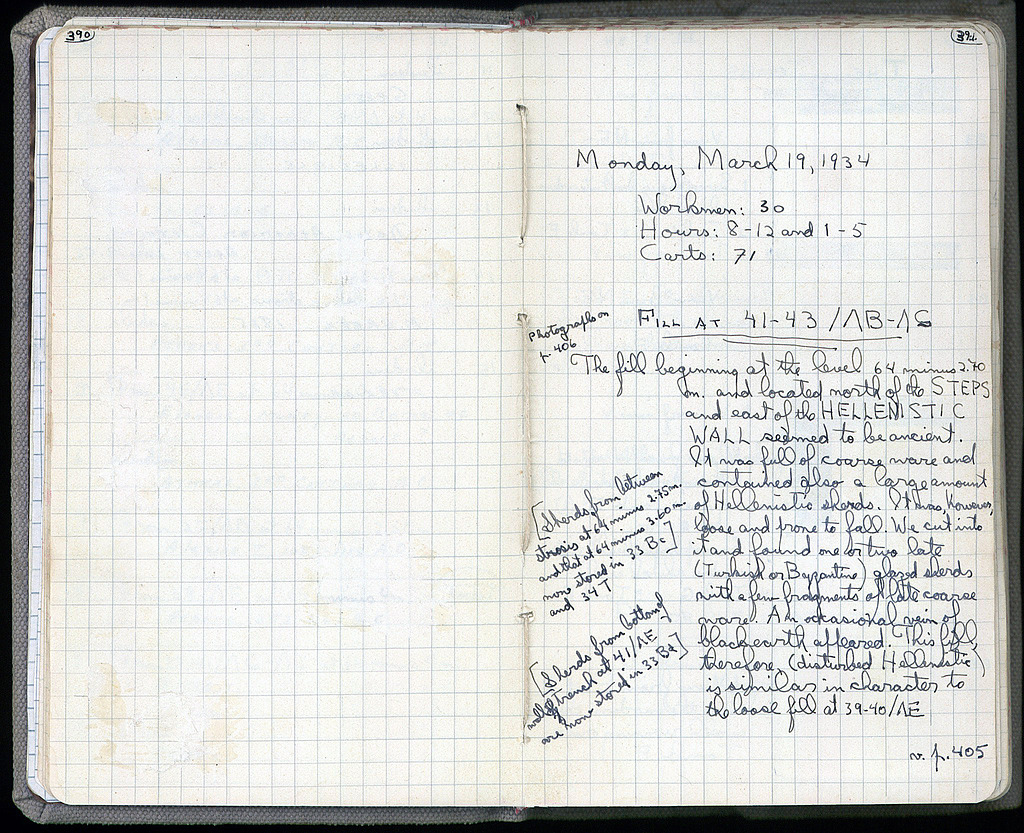 390
391
Monday, March 19, 1934
Workmen: 30
Hours: 8-12 and 1-5
Carts: 71
FILL AT 41-43/ΛB-ΛS
Photographs on
p. 406
The fill beginning at the level 64 minus 2.70
m. and located north of the STEPS
and east of the HELLENISTIC
WALL seemed to be ancient.
It was full of coarse ware and
contained also a large amount
of Hellenistic sherds. It was, however,
loose and prone to fall. We cut into
it and found one or two late
(Turkish or Byzantine) glazed sherds
with a few fragments of late coarse
ware. An occasional vein of
black earth appeared. This fill,
therefore, (disturbed Hellenistic)
is similar in character to
the loose fill at 39-40/ΛE
v. p. 405
[Sherds from between
strosis at 64 minus 2.75 m.
and that at 64 minus 3.60 m.
now stored in 33 Bc]
and 34 T
[Sherds from bottom of
wall trench at 41/ΛE
are now stored in 33 Bd]